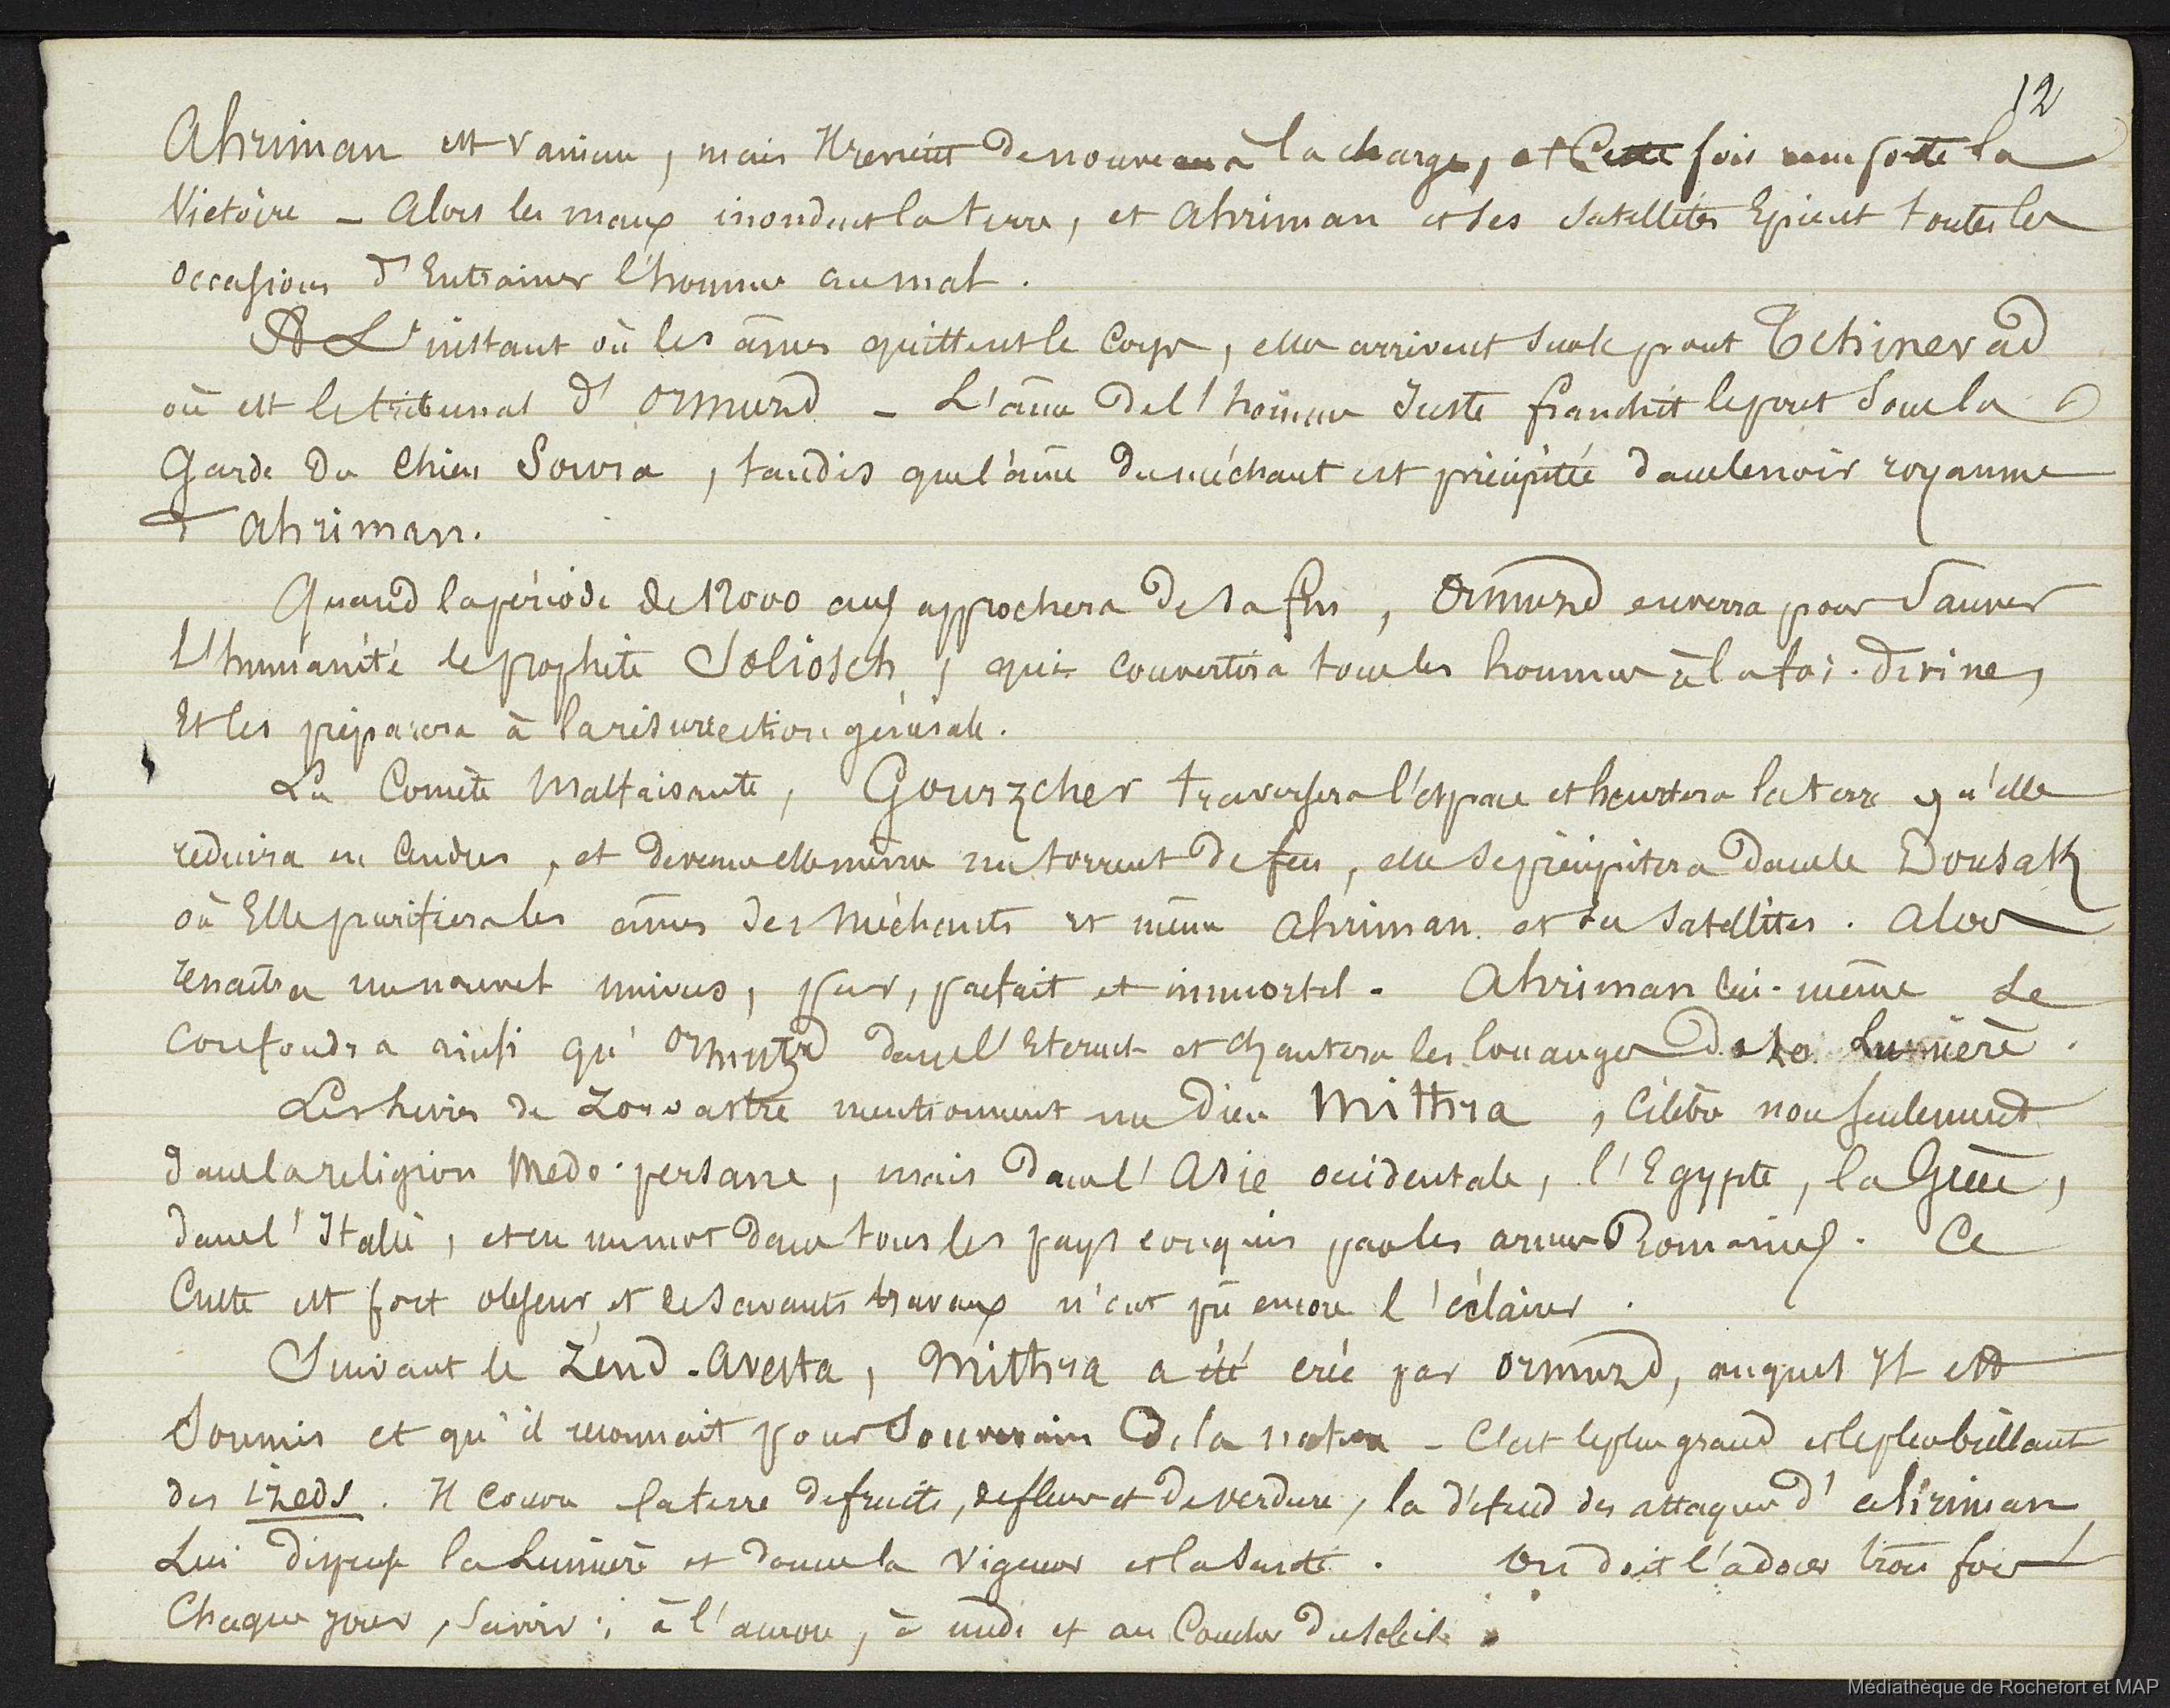 12
Ahriman est vaincu, mais Il revient de nouveau à la charge, et Cette fois remporte la
Victoire - Alors les maux inondent la terre, et Ahriman et ses satellites Épient toutes les
occasions d'Entrainer l'homme au mal.
A L'instant où les âmes quittent le corps, elles arrivent sur le pont Tchinevad
où est le tribunal d'ormuzd - L'âme de l'homme Juste franchit le pont sous la
Garde du Chien Soura, tandis que l'âme du méchant est précipitée dans le noir royaume
d'Ahriman.
Quand la période de 12000 ans approchera de sa fin, Ormuzd enverra pour Sauver
L'humanité le prophète Soliosch, qui convertira tous les hommes à la foi divine,
Et les préparera à la résurrection générale.
La Comète Malfaisante, Gourzcher traversera l'espace et heurtera la terre qu'elle
réduira en Cendres, et devenue elle même un torrent de feu, elle se précipitera dans le Dousak
où Elle purifiera les âmes des Méchants et même Ahriman et ses satellites. Alors
renaîtra un nouvel univers, pur, parfait et immortel. Ahriman lui-même se
confondra ainsi qu'Ormuzd dans l'Eternel et chantera les louanges de la Lumière.
Les livres de Zoroastre mentionnent un dieu Mithra, Célèbre non seulement
dans la religion Medo-persane, mais dans l'Asie occidentale, l'Egypte, la Grèce,
dans l'Italie, et en un mot dans tous les pays conquis par les armes Romaines. Ce
Culte est fort obscur, et les savants travaux n'ont pû encore l'éclairer.
Suivant le Zend-Avesta, Mithra a été créé par ormuzd, auquel Il est
Soumis et qu'il reconnait pour Souverain de la nature - C'est le plus grand et le plus brillant
des izeds. Il couvre la terre de fruits, de fleurs et de verdure, la défend des attaques d'ahriman
Lui dispense la Lumière et donne la vigueur et la santé. On doit l'adorer trois fois
Chaque jour, Savoir: à l'aurore, à midi et au Coucher du soleil.
Médiathèque de Rochefort et MAP